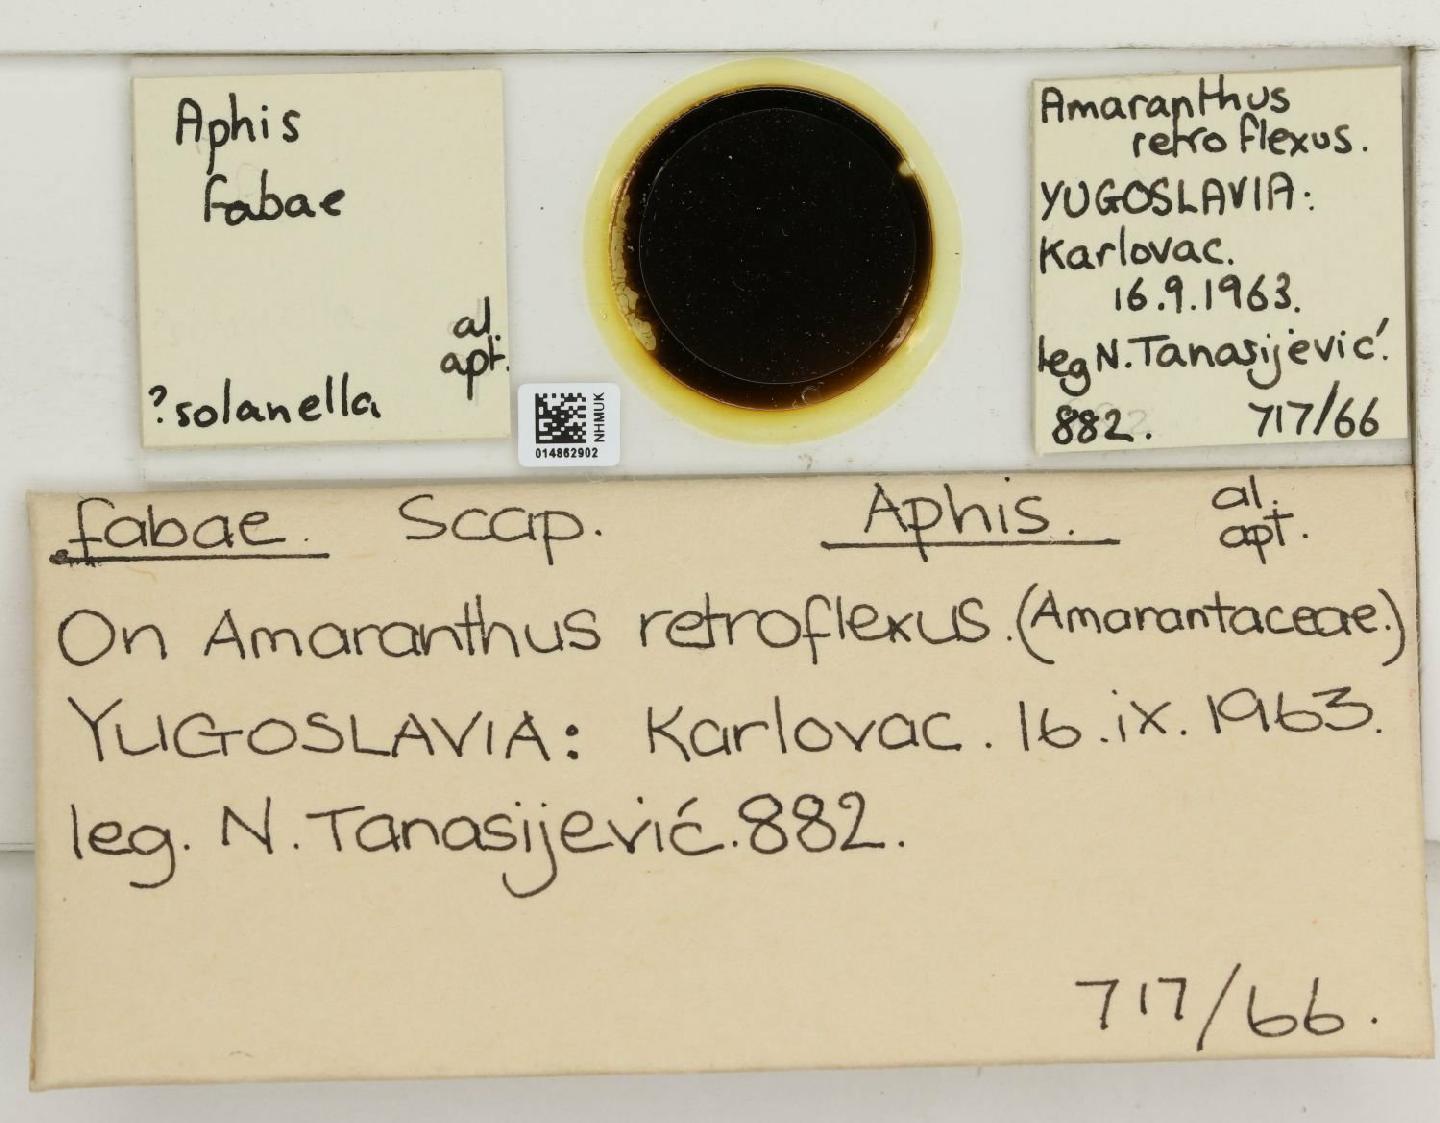 Aphis
fabae
al.
apt.
?solanella
NHMUK
014862902
Amaranthus
retroflexus.
YUGOSLAVIA:
Karlovac.
16.9.1963.
leg N. Tanasijević.
882. 717/66
fabae. Scop. Aphis. al.
apt.
On Amaranthus retroflexus. (Amarantaceae.)
YUGOSLAVIA: Karlovac. 16.ix.1963.
leg. N. Tanasijević. 882.
717/66.